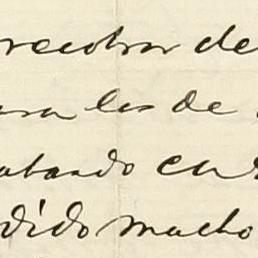 recobrar de
para los de
atando en
dido mucho